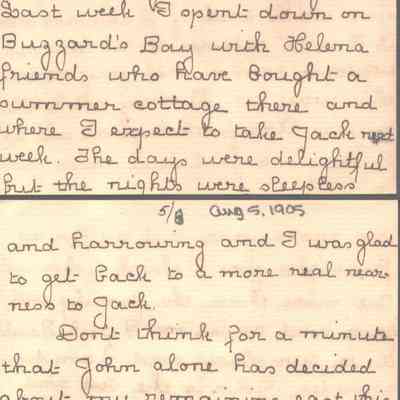 Last week I spent down on
Buzzard's Bay with Helena
friends who have bought a
summer cottage there and
where I expect to take Jack next
week. The days were delightful
but the nights were sleepless
5/8 Aug 5, 1905
and harrowing and I was glad
to get back to a more real near-
ness to Jack.
Don't think for a minute
that John alone has decided
about my remaining east this